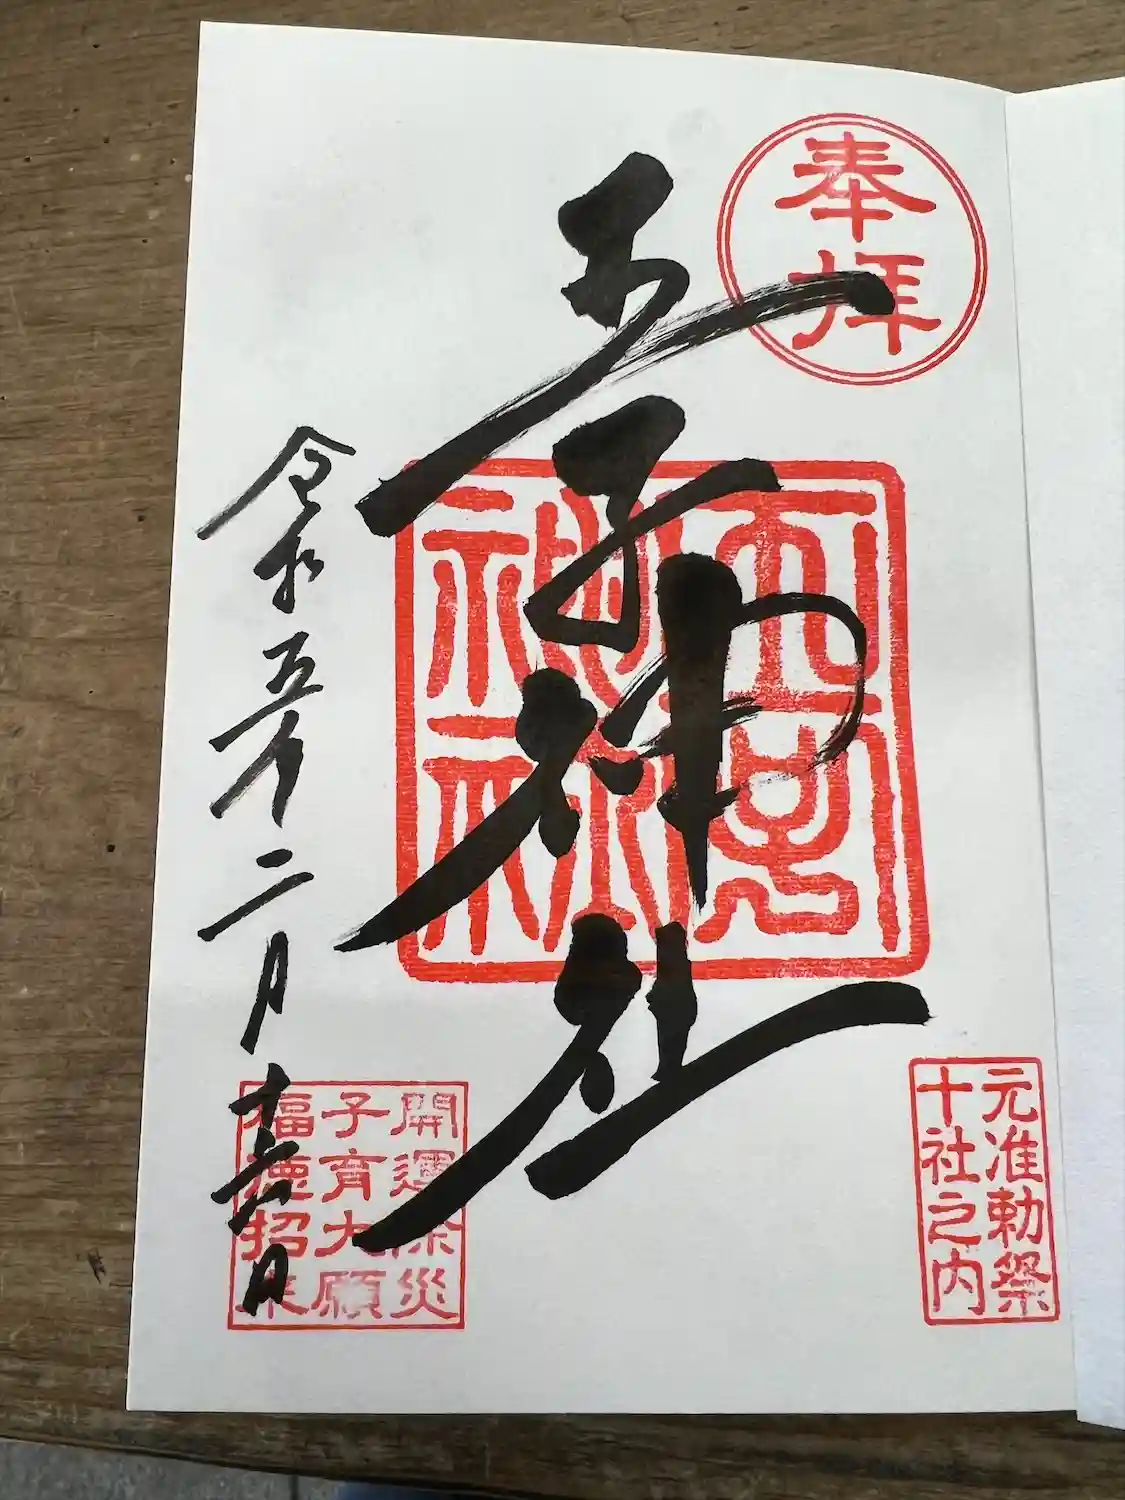 奉拝
王子神社
元准勅祭
十社之内
開運除災
子育大願
福徳招来
令和五年二月十六日